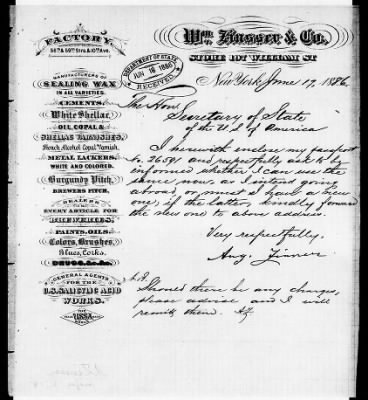 FACTORY,
Wm. Zinsser & Co.
STORE 197 WILLIAM ST
DEPARTMENT OF STATE
JUN 18 1886
RECEIVED
New York June 17, 1886.
MANUFACTURERS OF
SEALING WAX
IN ALL VARIETIES.
CEMENTS,
White Shellac,
OIL, COPAL &
SHELLAC VARNISHES,
French Alcohol Copal Varnish,
METAL LACKERS,
WHITE AND COLORED,
Burgundy Pitch,
BREWERS PITCH,
DEALERS
IN
EVERY ARTICLE FOR
BREWERIES.
PAINTS, OILS,
Colors, Brushes,
Glues, Corks,
DRUGS, &c. &c.
GENERAL AGENTS
FOR THE
U.S. SALICYLIC ACID
WORKS.
The Hon.
Secretary of State
of the U.S. of America
I herewith enclose my passport
No. 26591 and respectfully ask to be
informed whether I can use the
same now, as I intend going
abroad, or must I have a new
one; if the latter, kindly forward
the new one to above address.
Very respectfully,
Aug. Zinsser
Should there be any charges,
please advise and I will
remit them. AZ